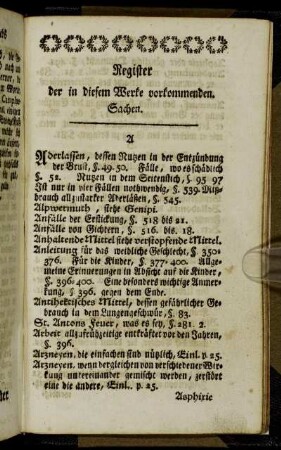 Register
der in diesem Werke vorkommenden
Sachen.
A
Aderlassen, dessen Nutzen in der Entzündung
der Brust, §. 49. 50. Fälle, wo es schädlich
§. 52. Nutzen in dem Seitenstich, §. 95 97
Ist nur in vier Fällen nothwendig, §. 539. Miß-
brauch allzustarker Aderläßen, §. 545.
Alpwermuth, siehe Genipi.
Anfälle der Erstickung, §. 518 bis 21.
Anfälle von Gichtern, §. 516. bis. 18.
Anhaltende Mittel siehe verstopfende Mittel.
Anleitung für das weibliche Geschlecht, §. 350.
376. Für die Kinder, §. 377. 400. Allge-
meine Erinnerungen in Absicht auf die Kinder,
§. 396. 400. Eine besonders wichtige Anmer-
kung, §. 396. gegen dem Ende.
Antihektisches Mittel, dessen gefährlicher Ge-
brauch in dem Lungengeschwür, §. 83.
St. Antons Feuer, was es sey, §. 281. 2.
Arbeit allzufrühzeitige entkräftet vor den Jahren,
§. 396.
Arzneyen. die einfachen sind nüzlich, Einl. p. 25.
Arzneyen, wenn dergleichen von verschiedener Wir-
kung untereinander gemischt werden, zerstört
eine die andere, Einl. p. 25.
Asphixie